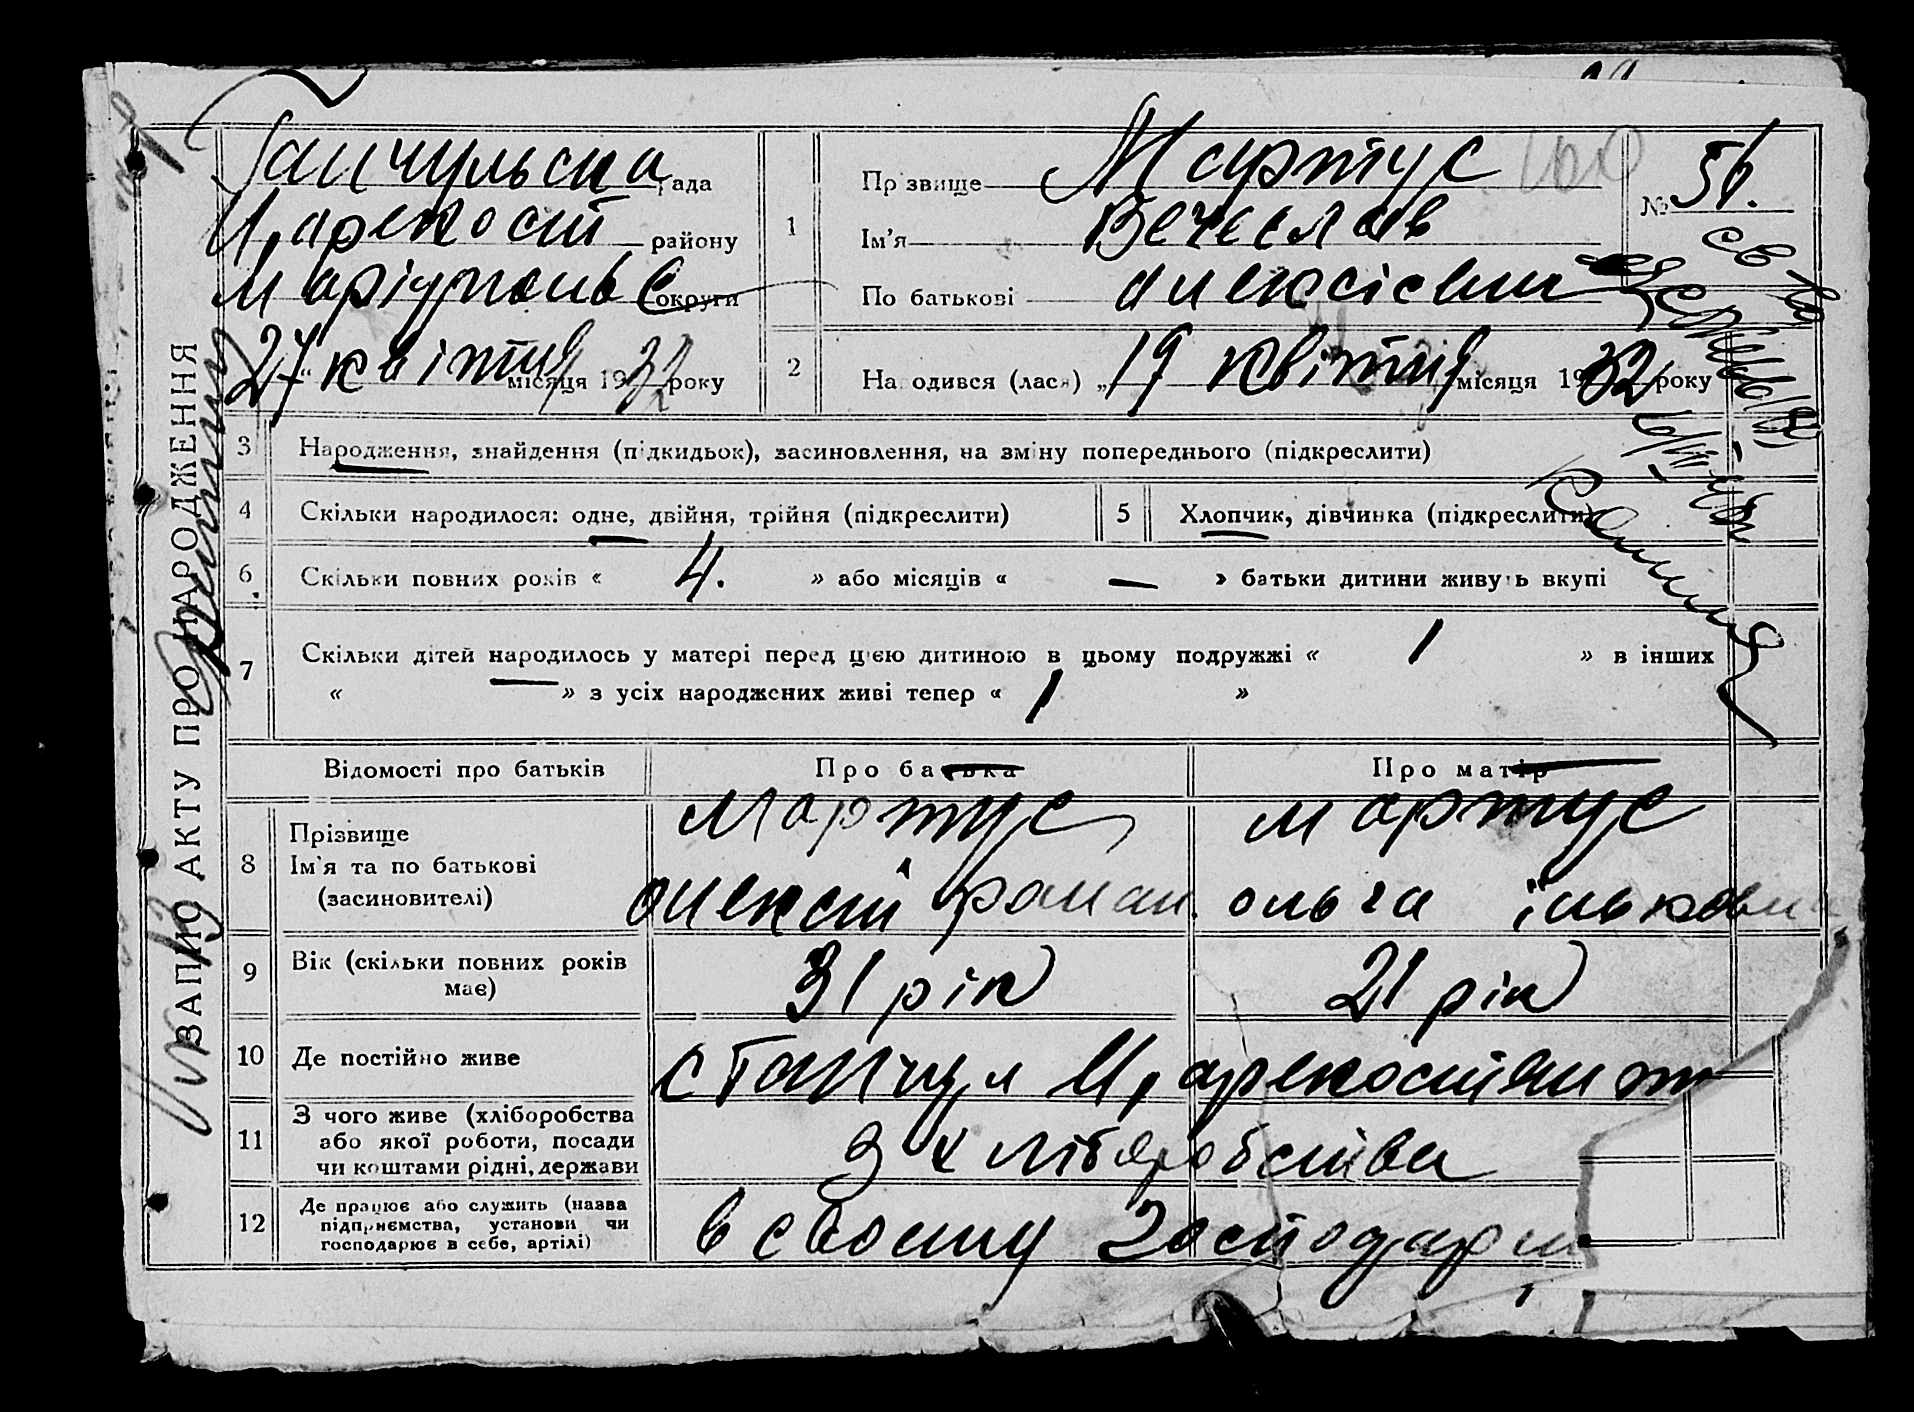 ЗАПИС АКТУ ПРО НАРОДЖЕННЯ
Гайчульська рада
Царекост району
Маріупольс округи
"27" квітня місяця 1932 року
1
Прізвище Мартус
Ім'я Вечеслав
По батькові Алексієвич
№ 56.
160
2
Народився (лася) „19 квітня місяця 1932 року
св-во
3 Народження, знайдення (підкидьок), засиновлення, на зміну попереднього (підкреслити)
4 Скільки народилося: одне, двійня, трійня (підкреслити)
5 Хлопчик, дівчинка (підкреслити)
6 Скільки повних років « 4. » або місяців « — » батьки дитини живуть вкупі
7 Скільки дітей народилось у матері перед цією дитиною в цьому подружжі « 1 » в інших
« — » з усіх народжених живі тепер « 1 »
Відомості про батьків Про батька Про матір
8 Прізвище
Ім'я та по батькові
(засиновителі)
Мартус
Олексій Роман.
Мартус
Ольга Ільковна
9 Вік (скільки повних років
має)
31 рік
21 рік
10 Де постійно живе
с Гайчул Царекостівки
11 З чого живе (хліборобства
або якої роботи, посади
чи коштами рідні, держави
З хліборобства
12 Де працює або служить (назва
підприємства, установи чи
господарює в себе, артілі)
в своєму господар